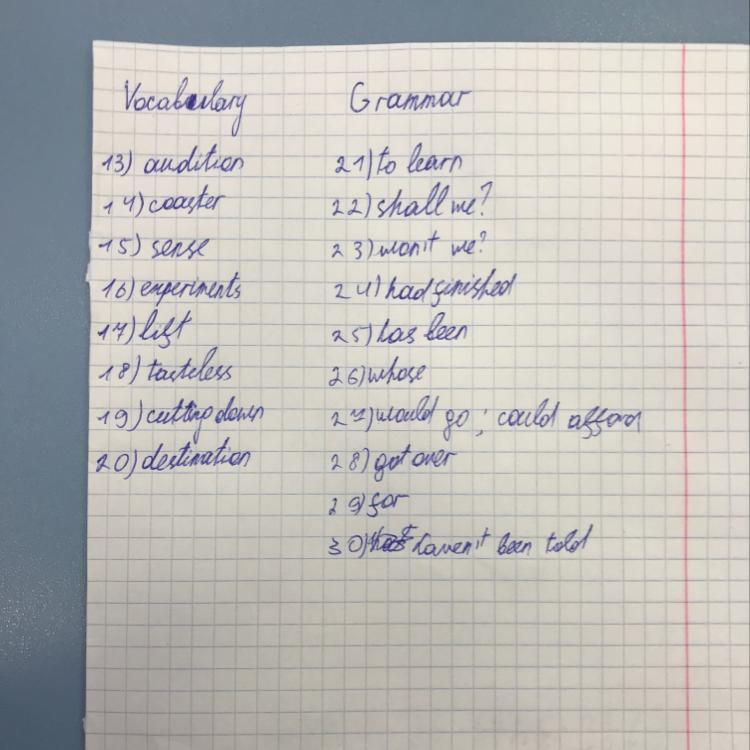 Vocabulary
13) audition
14) coaster
15) sense
16) experiments
17) lift
18) tasteless
19) cutting down
20) destination
Grammar
21) to learn
22) shall we?
23) won't we?
24) had finished
25) has been
26) whose
27) would go; could afford
28) got over
29) for
30) haven't been told